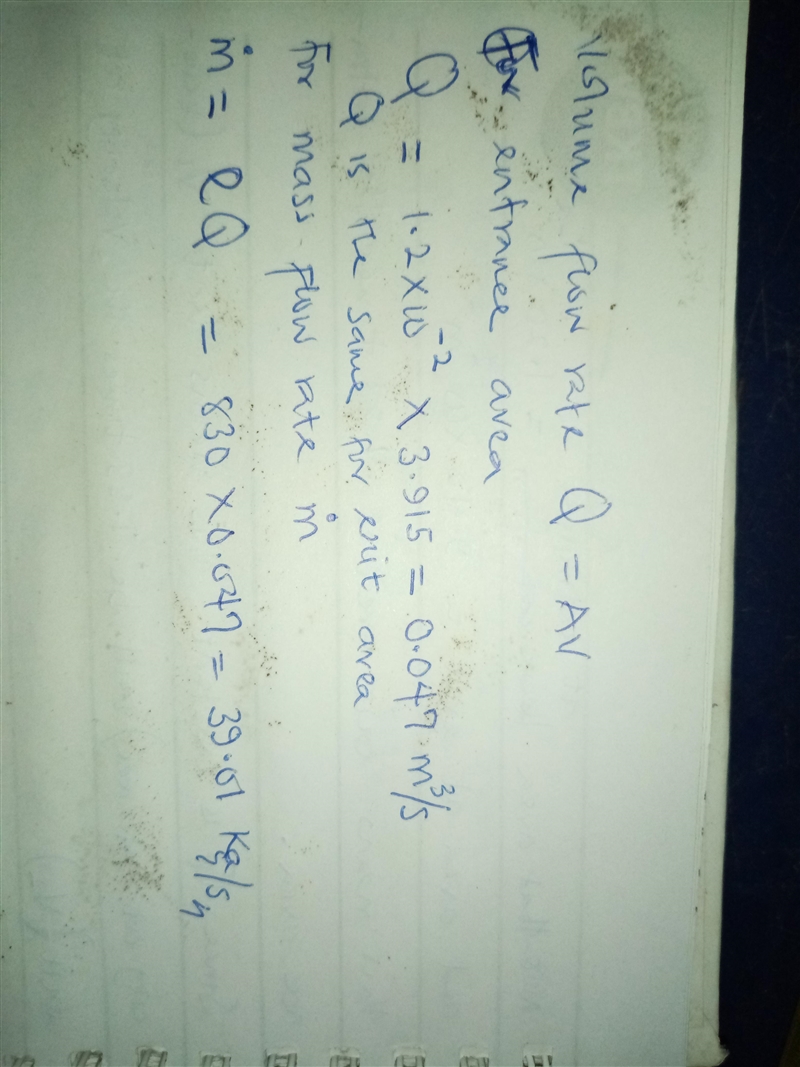 Volume flow rate Q = AV
For entrance area
Q = 1.2 × 10⁻² × 3.915 = 0.047 m³/s
Q is the same for exit area
For mass flow rate ṁ
ṁ = ρQ = 830 × 0.047 = 39.01 Kg/s